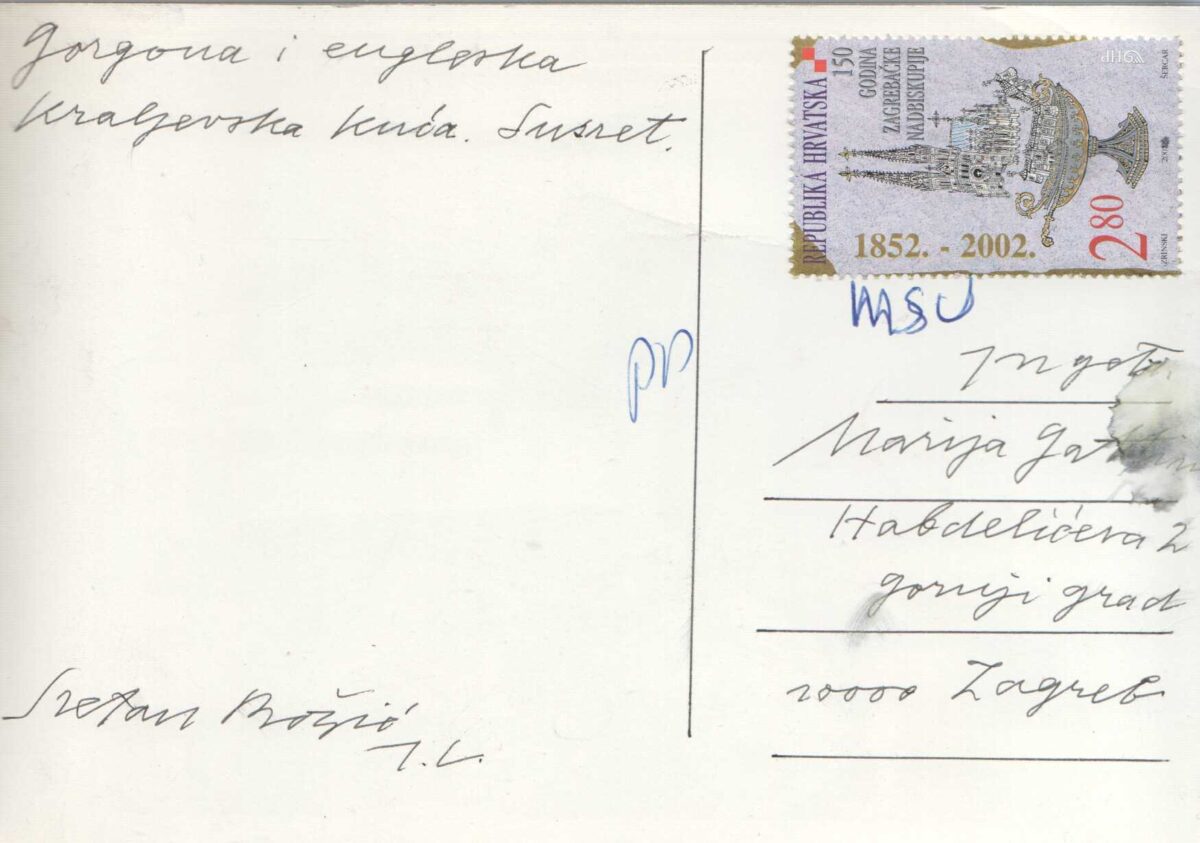 Gorgona i engleska
Kraljevska kuća. Susret.
Sretan Božić
I.L.
PP
REPUBLIKA HRVATSKA
150
GODINA
ZAGREBAČKE
NADBISKUPIJE
1852. - 2002.
2 80
ZRINSKI
ŠERCAR
MSU
Marija
Habdelićeva 2
gornji grad
10000 Zagreb